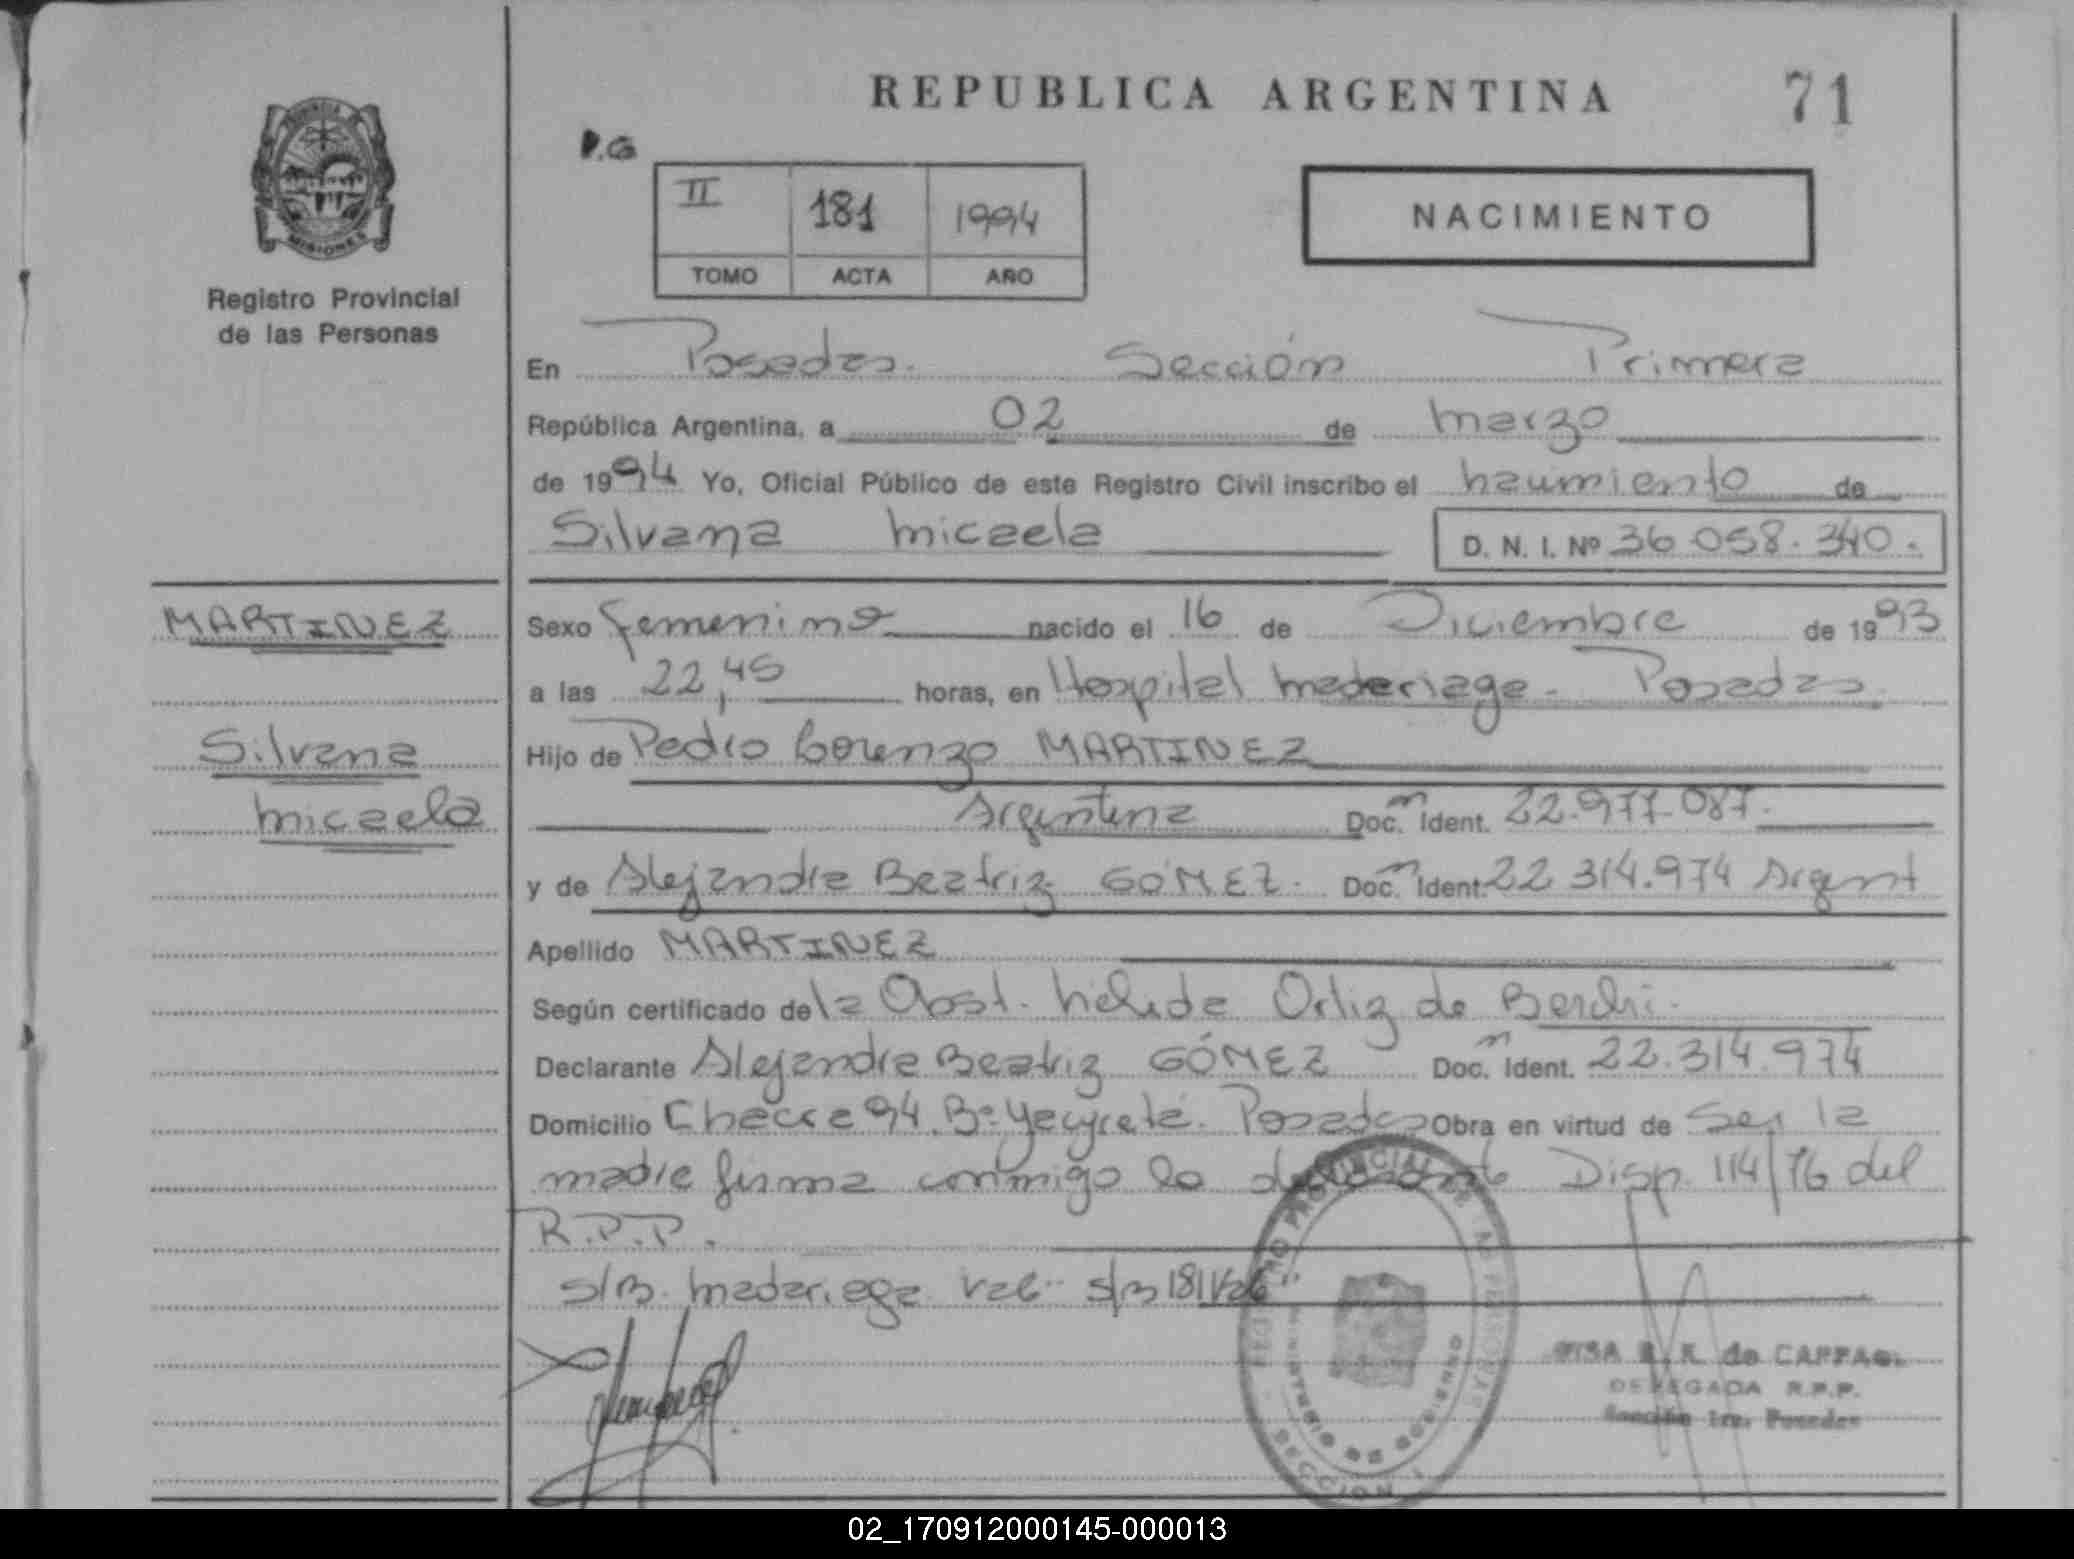 REPUBLICA ARGENTINA
71
P.G
II 181 1994
TOMO ACTA AÑO
NACIMIENTO
MISIONES
Registro Provincial
de las Personas
En Posadas. Sección Primera
República Argentina, a 02 de marzo
de 1994 Yo, Oficial Público de este Registro Civil inscribo el nacimiento de
Silvana Micaela
D. N. I. Nº 36.058.340.
MARTINEZ
Silvana
Micaela
Sexo femenino nacido el 16 de Diciembre de 1993
a las 22,45 horas, en Hospital Madariaga - Posadas
Hijo de Pedro Lorenzo MARTINEZ
Argentina Doc. Ident. 22.977.087.
y de Alejandra Beatriz GÓMEZ. Doc. Ident. 22.314.974 Argent
Apellido MARTINEZ
Según certificado de la Obst. Ortiz de
Declarante Alejandra Beatriz GÓMEZ Doc. Ident. 22.314.974
Domicilio 94 Bº Yacyretá. Posadas Obra en virtud de Ser la
madre firma conmigo la declarante Disp. 114/76 del
R.P.P.
S/B. Madariaga Vale
de CAFFA
DELEGADA R.P.P.
Sección 1ra. Posadas
MINISTERIO DE GOBIERNO
SECCION 1
02_170912000145-000013